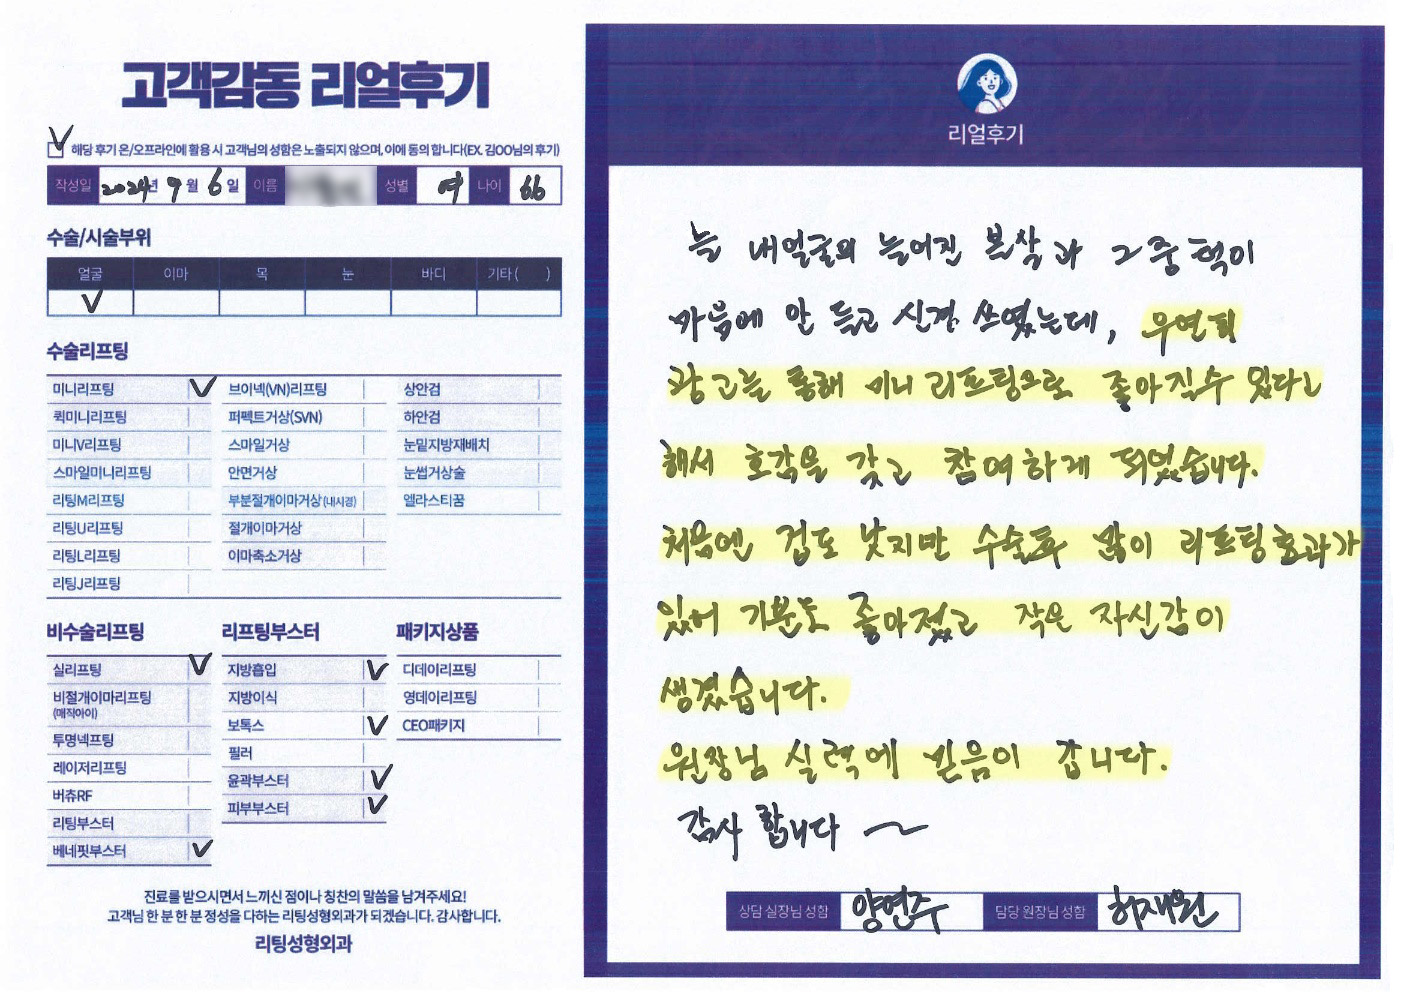 고객감동 리얼후기
해당 후기 온/오프라인에 활용 시 고객님의 성함은 노출되지 않으며, 이에 동의 합니다(EX. 김OO님의 후기)
작성일 2024년 9월 6일 이름 성별 여 나이 66
수술/시술부위
얼굴 이마 목 눈 바디 기타( )
수술리프팅
미니리프팅 브이넥(VN)리프팅 상안검
퀵미니리프팅 퍼펙트거상(SVN) 하안검
미니V리프팅 스마일거상 눈밑지방재배치
스마일미니리프팅 안면거상 눈썹거상술
리팅M리프팅 부분절개이마거상(내시경) 엘라스티꿈
리팅U리프팅 절개이마거상
리팅L리프팅 이마축소거상
리팅J리프팅
비수술리프팅 리프팅부스터 패키지상품
실리프팅 지방흡입 디데이리프팅
비절개이마리프팅 지방이식 영데이리프팅
(매직아이)
투명넥프팅 보톡스 CEO패키지
레이저리프팅 필러
버츄RF 윤곽부스터
리팅부스터 피부부스터
베네핏부스터
진료를 받으시면서 느끼신 점이나 칭찬의 말씀을 남겨주세요!
고객님 한 분 한 분 정성을 다하는 리팅성형외과가 되겠습니다. 감사합니다.
리팅성형외과
리얼후기
늘 내얼굴의 늘어진 볼살과 그중 턱이
마음에 안 들고 신경 쓰였는데, 우연히
광고를 통해 미니리프팅으로 좋아질수 있다고
해서 호감을 갖고 참여하게 되었습니다.
처음엔 겁도 났지만 수술후 많이 리프팅효과가
있어 기분도 좋아졌고 작은 자신감이
생겼습니다.
원장님 실력에 믿음이 갑니다.
감사 합니다 ~
상담 실장님 성함 양연주 담당 원장님 성함 허재원